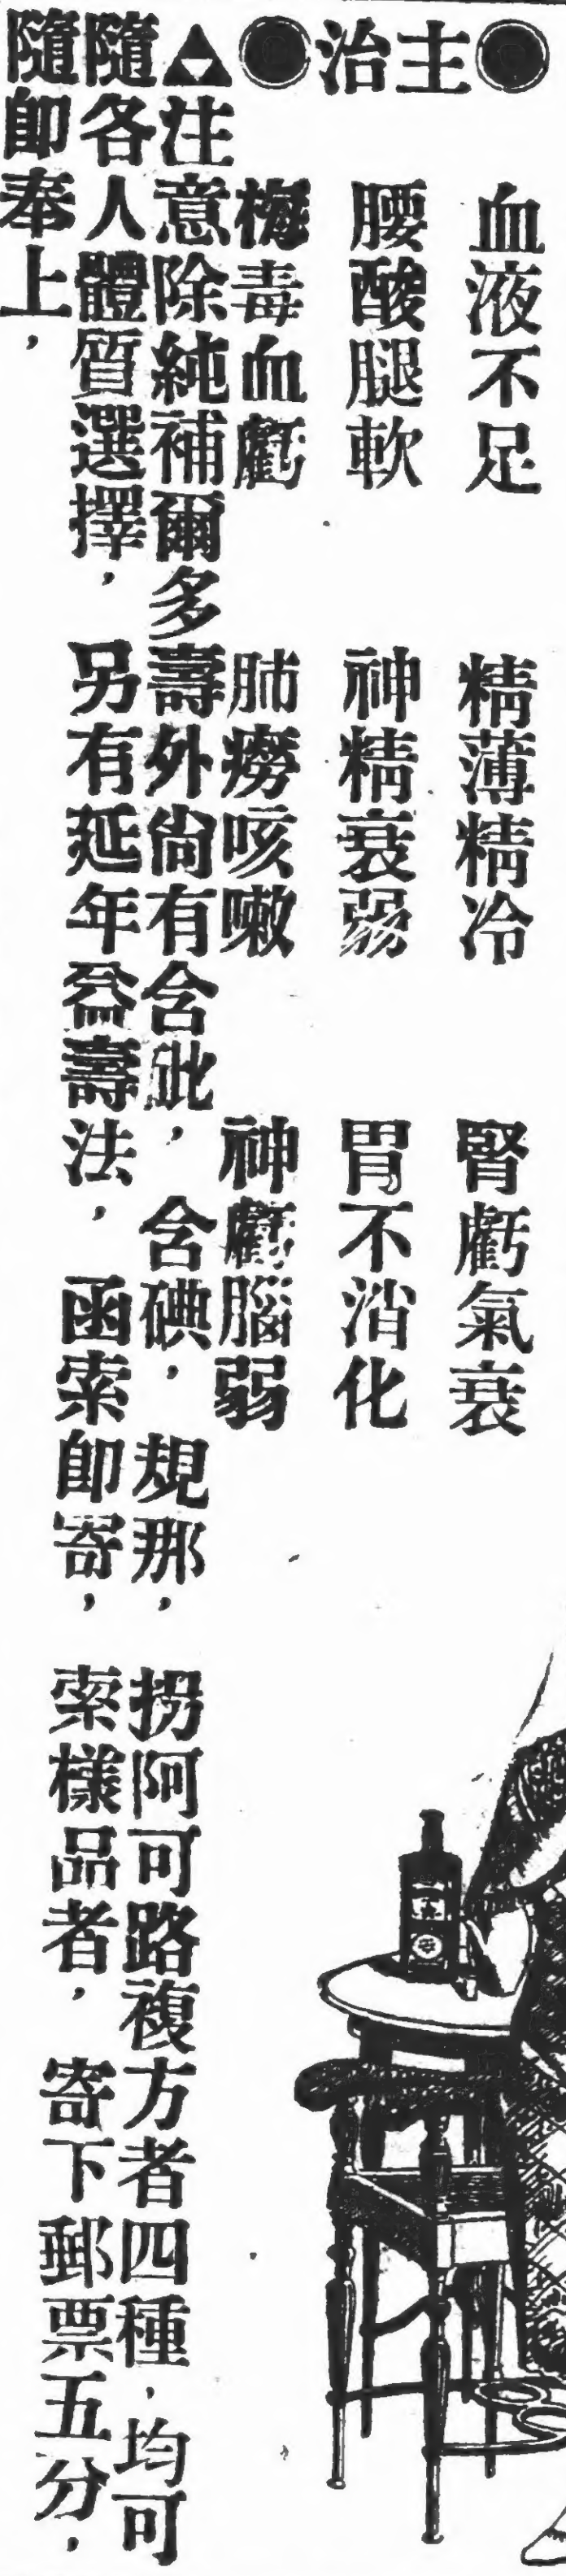 ●主治●
血液不足　精薄精冷　腎虧氣衰
腰酸腿軟　神精衰弱　胃不消化
梅毒血虧　肺癆咳嗽　神虧腦弱
▲注意除純補爾多壽外尙有含砒，含碘，規那，撈阿可路複方者四種，均可
隨各人體質選擇，另有延年益壽法，函索卽寄，索樣品者，寄下郵票五分，
隨卽奉上，